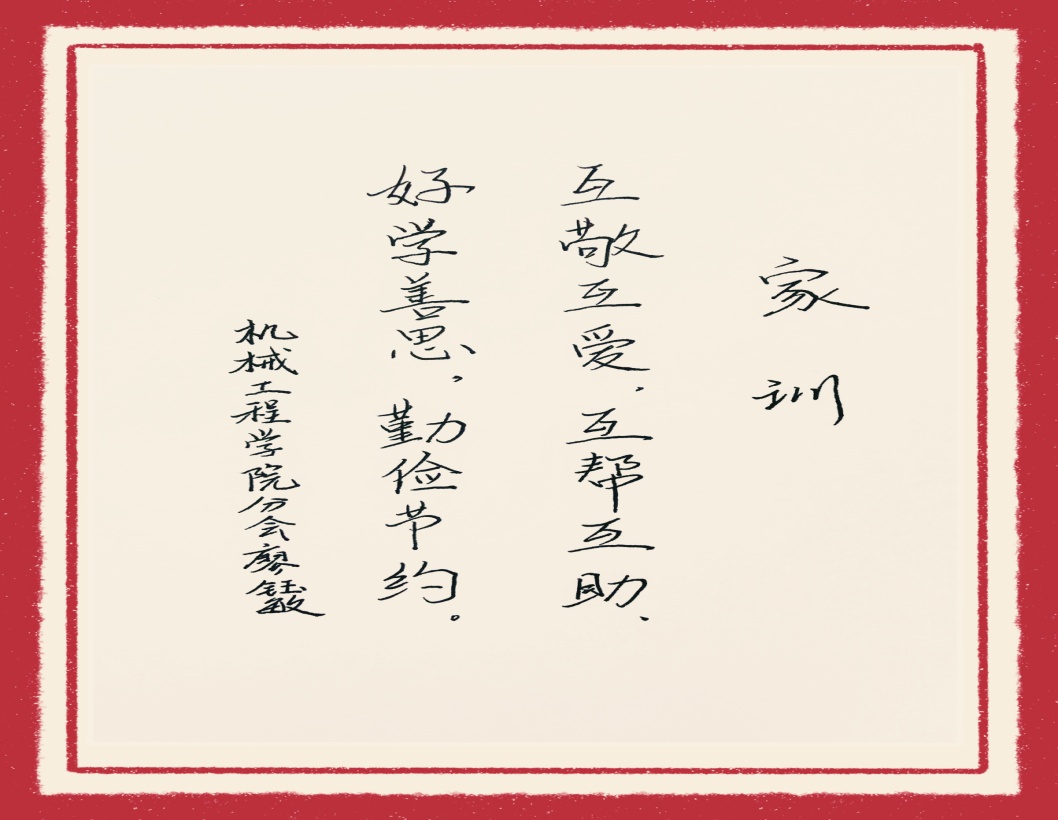 家训
互敬互爱，互帮互助，
好学善思，勤俭节约。
机械工程学院分会廖钰敏